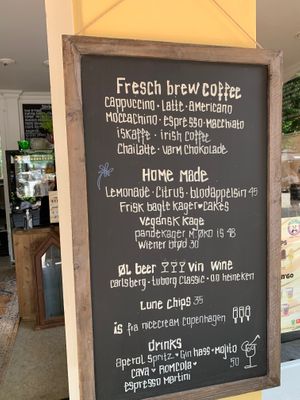 Fresch brew coffee
cappuccino · latte · americano
moccachino · espresso · macchiato
iskaffe · irish coffe
chailatte · varm chokolade
Home made
Lemonade · citrus · blodappelsin 45
Frisk bagte kager · cakes
vegansk kage
pandekager m. øko is 48
wiener brød 30
Øl beer vin wine
carlsberg · tuborg classic · 0,0 heineken
Lune chips 35
is fra nicecream copenhagen
drinks
aperol spritz · gin hass · mojito
cava · romcola · 50
espresso martini